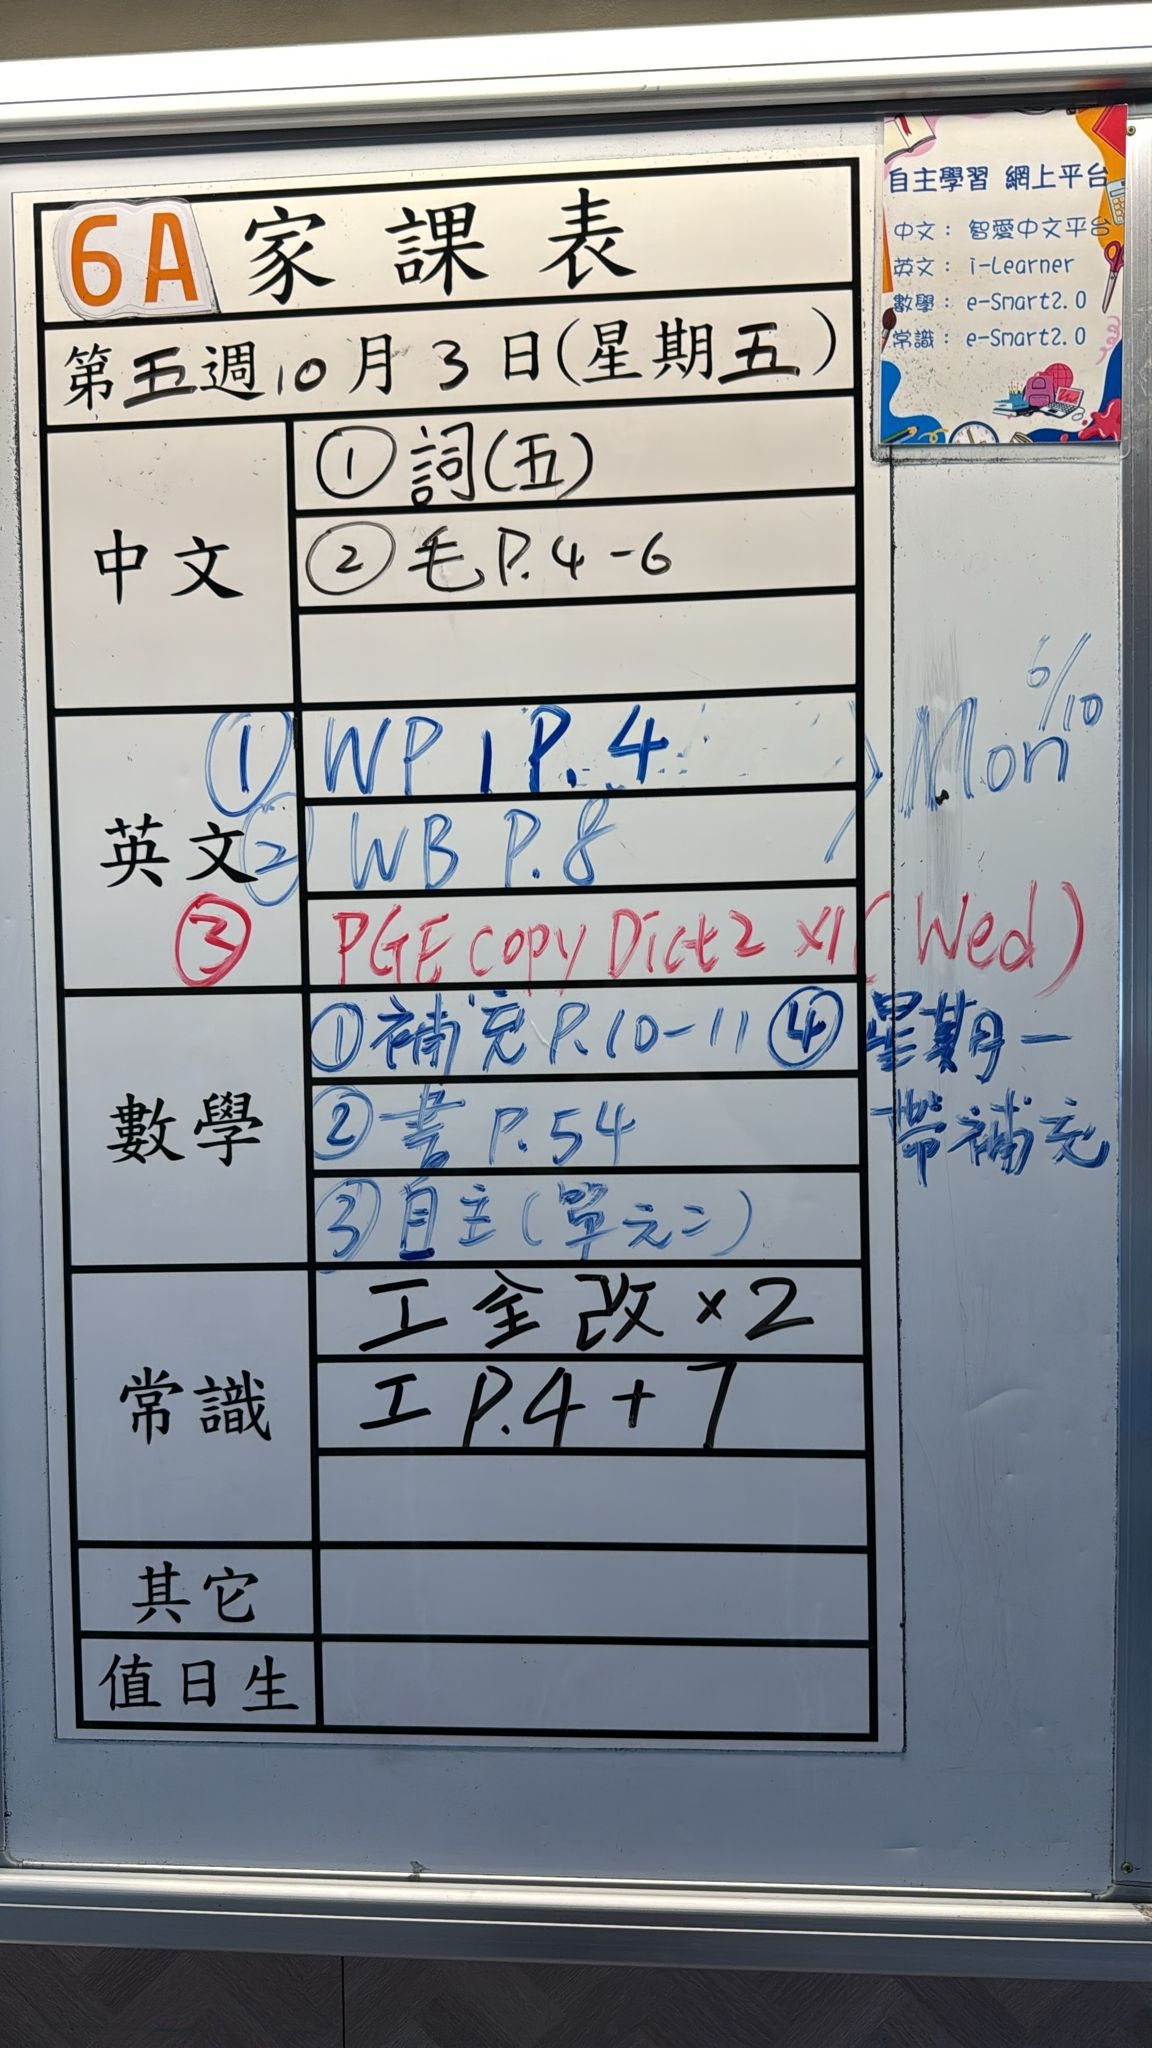 6A 家課表
第五週10月3日(星期五)
中文
①詞(五)
②毛P.4-6
英文
① WP 1 P.4
② WB P.8
Mon 6/10
③ PGE copy Dict 2 x1 (Wed)
數學
①補充P.10-11 ④星期一
帶補充
②書 P.54
③自主(單元二)
常識
工全改×2
工 P.4+7
其它
值日生
自主學習 網上平台
中文： 智愛中文平台
英文： i-Learner
數學： e-Smart2.0
常識： e-Smart2.0